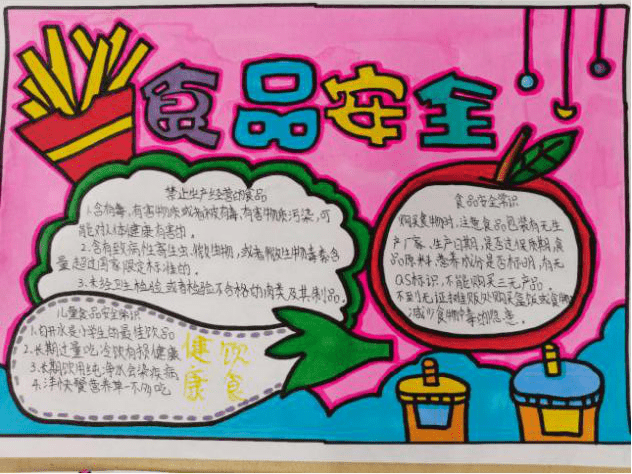 食品安全
禁止生产经营的食品
1.含有毒,有害物质或者被有毒,有害物质污染,可
能对人体健康有害的.
2.含有致病性寄生虫、微生物,或者微生物毒素含
量超过国家限定标准的.
3.未经卫生检验或者检验不合格的肉类及其制品.
食品安全常识
购买食物时,注意食品包装有无生
产厂家、生产日期,是否过保质期,食
品原料、营养成分是否标明,有无
QS标识,不能购买三无产品.
不到无证摊贩处购买盒饭或食物
减少食物中毒的隐患.
儿童食品安全常识
1.白开水是小学生的最佳饮品
2.长期过量吃冷饮有损健康
3.长期饮用纯净水会染疾病
4.洋快餐营养单一不多吃
健康
饮食